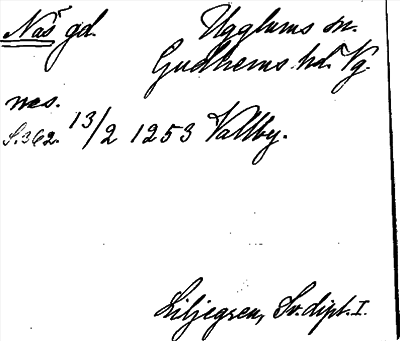 Näs gd. Ugglums sn.
Gudhems hd. Vg.
nes.
S. 362. 13/2 1253 Vallby.
Liljegren, Sv. dipl. I.